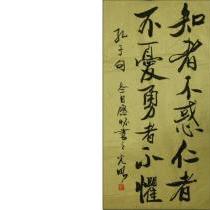 知者不惑仁者
不憂勇者不懼
孔子句